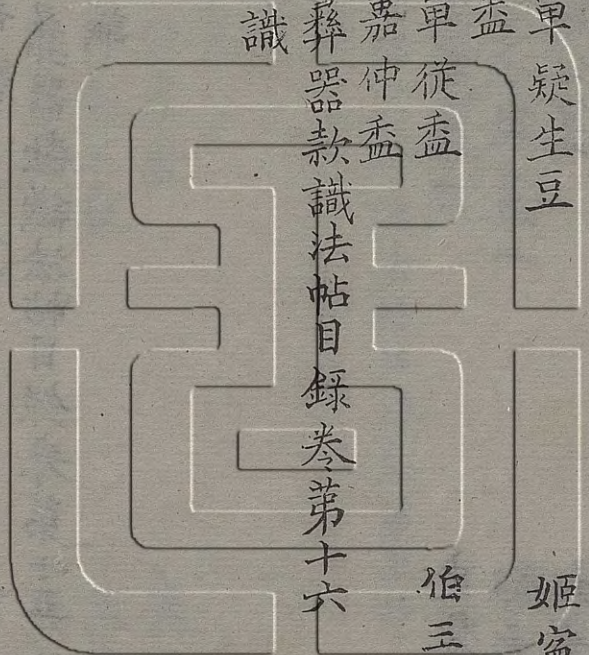 單疑生豆　姬寏
盉
單從盉　伯三
嘉仲盉
彝器款識法帖目錄卷第十六
識